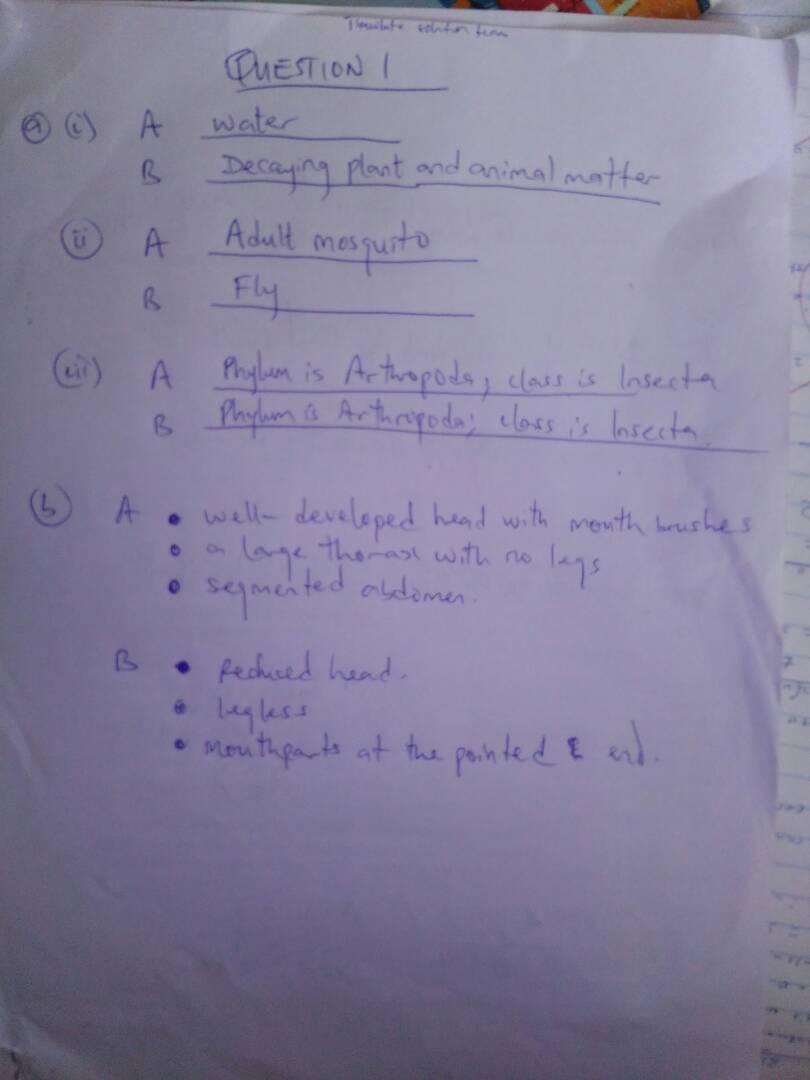 solution team
QUESTION 1
a (i) A water
B Decaying plant and animal matter
(ii) A Adult mosquito
B Fly
(iii) A Phylum is Arthropoda; class is Insecta
B Phylum is Arthropoda; class is Insecta.
(b) A • well-developed head with mouth brushes
• a large thorax with no legs
• segmented abdomen.
B • Reduced head.
• legless
• mouthparts at the pointed end.